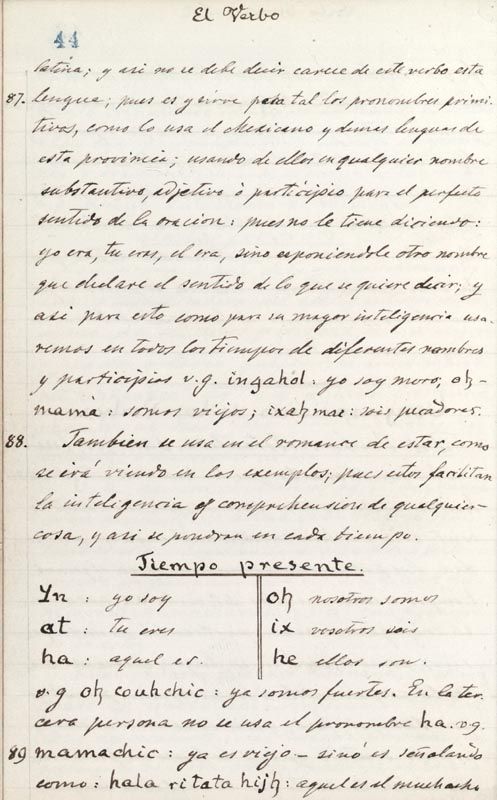 El Verbo
44
latina; y asi no se debe decir carece de este verbo esta
87. lengua; pues es y sirve para tal los pronombres primi-
tivos, como lo usa el Mexicano y demas lenguas de
esta provincia; usando de ellos en qualquier nombre
substantivo, adjetivo ò participio para el perfecto
sentido de la oracion: pues no le tiene diciendo:
yo era, tu eras, el era, sino esponiendole otro nombre
que declare el sentido de lo que se quiere decir; y
asi para esto como para su mayor inteligencia usa-
remos en todos los tiempos de diferentes nombres
y participios v.g. inꜩahol: yo soy moro, oꜧ-
mamà: somos viejos; ixaꜧmae: sois pecadores.
88. Tambien se usa en el romance de estar, como
se irá viendo en los exemplos; pues estos facilitan
la inteligencia y comprehension de qualquier
cosa, y asi se pondran en cada tiempo.
Tiempo presente.
Yn : yo soy oꜧ nosotros somos
at : tu eres ix vosotros sois
ha : aquel es. he ellos son.
v.g oꜧ couhchic: ya somos fuertes. En la ter-
cera persona no se usa el pronombre ha. v.g.
89 mamachic: ya es viejo – sinó es señalando
como: hala ritata hijꜧ: aquel es el muchacho